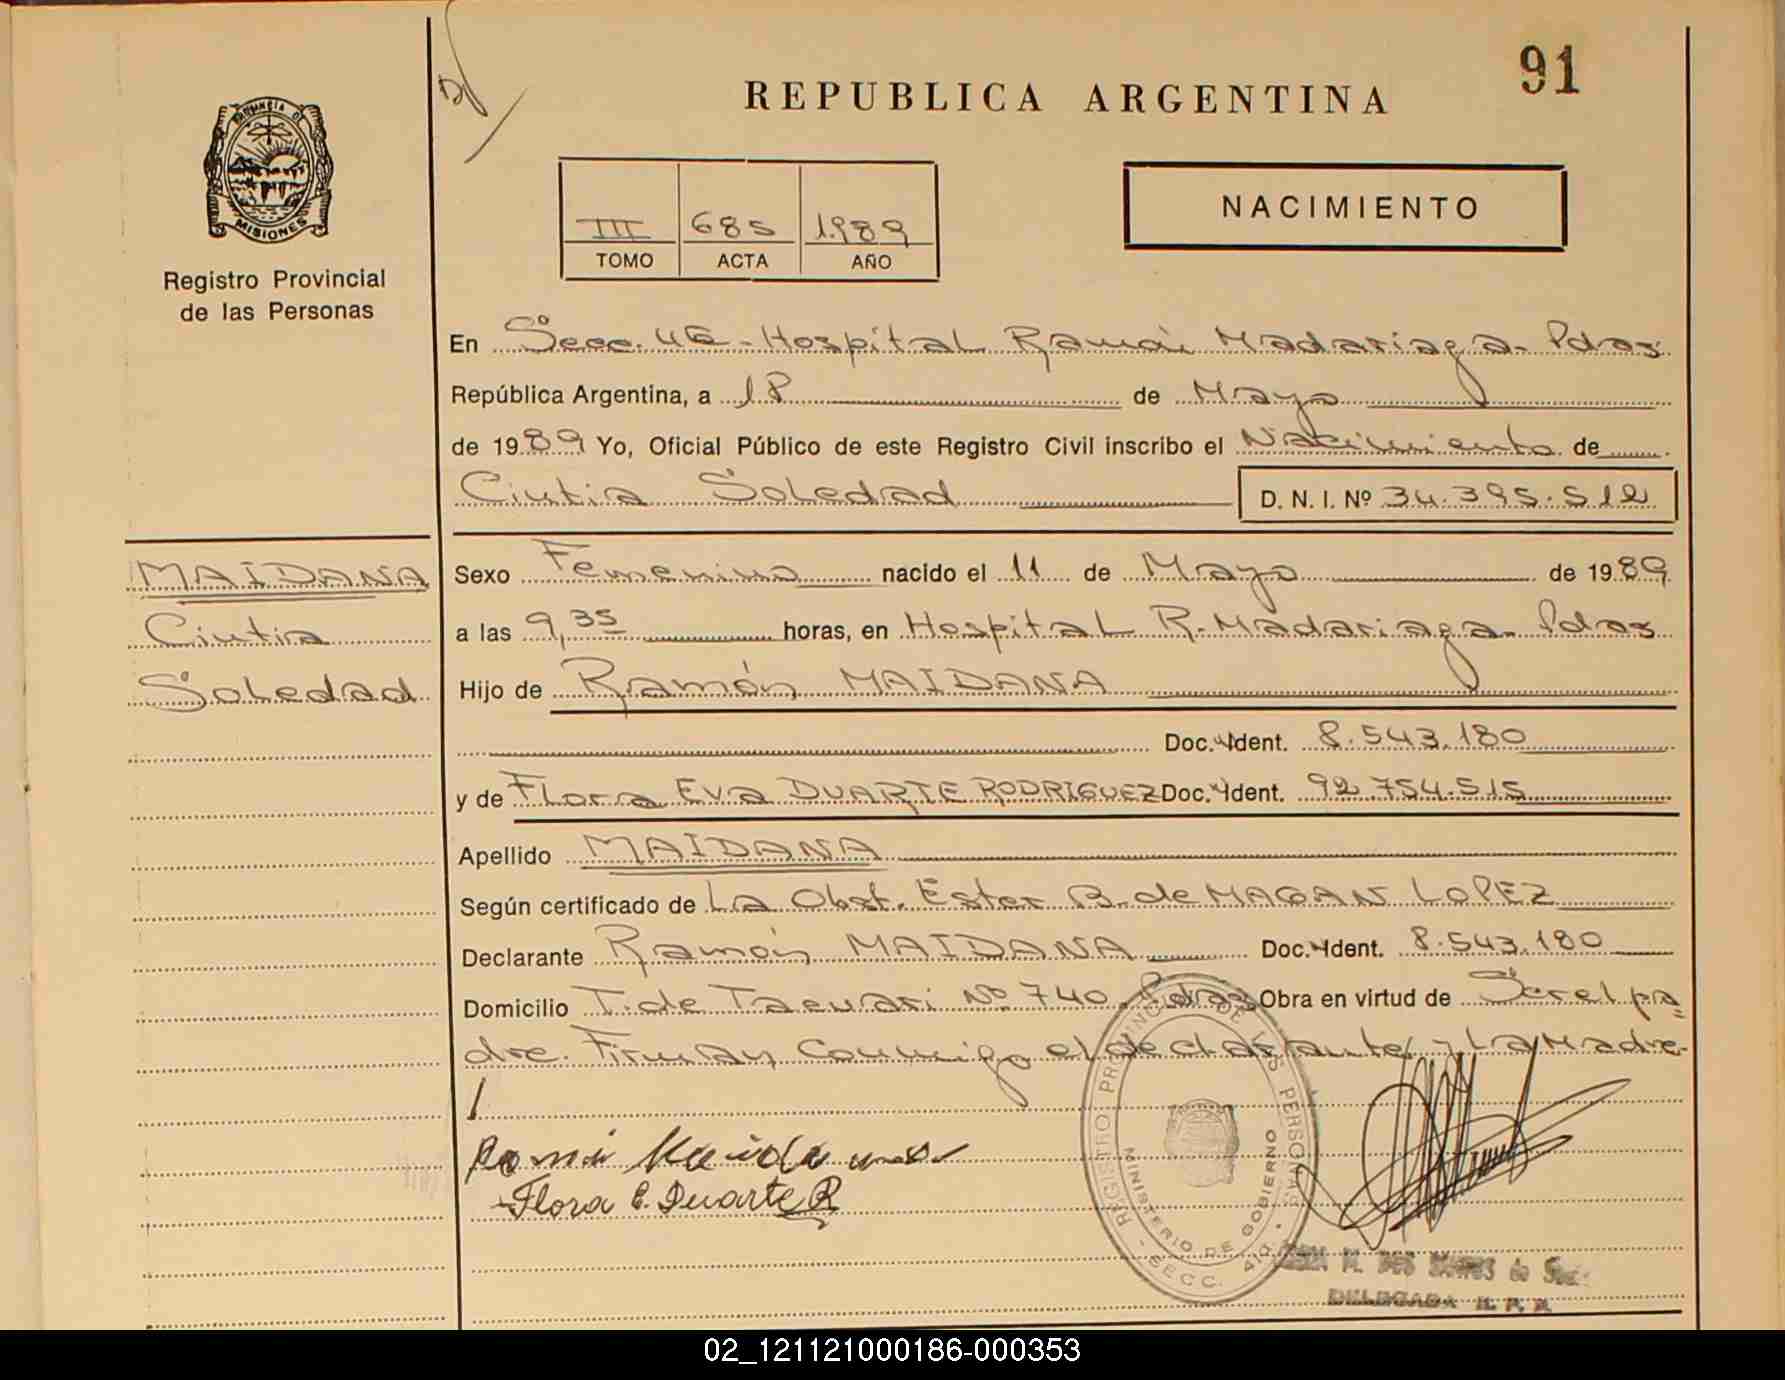 91
REPUBLICA ARGENTINA
PROVINCIA DE
MISIONES
Registro Provincial
de las Personas
III 685 1989
TOMO ACTA AÑO
NACIMIENTO
En Secc. 4a - Hospital Ramón Madariaga - Pdas
República Argentina, a 18 de Mayo
de 1989 Yo, Oficial Público de este Registro Civil inscribo el Nacimiento de
Cintia Soledad D. N. I. Nº 34.395.512
MAIDANA
Cintia
Soledad
Sexo Femenino nacido el 11 de Mayo de 1989
a las 9,35 horas, en Hospital R. Madariaga - Pdas
Hijo de Ramón MAIDANA
Doc. Ident. 8.543.180
y de Flora Eva DUARTE RODRIGUEZ Doc. Ident. 92.754.515
Apellido MAIDANA
Según certificado de La Obst. Ester B. de MAGAN LOPEZ
Declarante Ramón MAIDANA Doc. Ident. 8.543.180
Domicilio T. de Tacuari Nº 740. Pdas Obra en virtud de Ser el pa=
dre. Firman Conmigo el declarante y La Madre-
Flora E. Duarte R
REGISTRO PROVINCIAL DE LAS PERSONAS
MINISTERIO DE GOBIERNO
SECC. 4a
M. DOS SANTOS de
DELEGADA R. P. P.
02_121121000186-000353